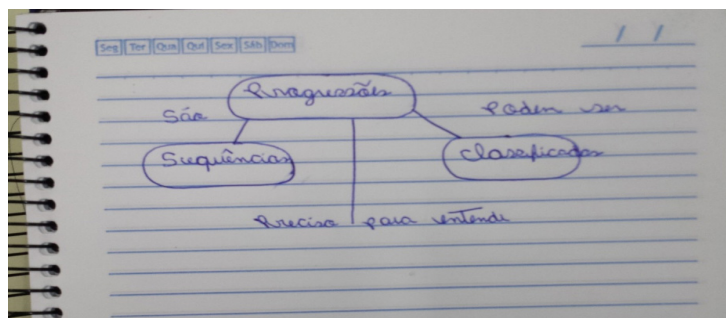 Seg Ter Qua Qui Sex Sáb Dom
/ /
Progressões
São
Poden ser
Sequências
Clasificadas
Precisa para entende